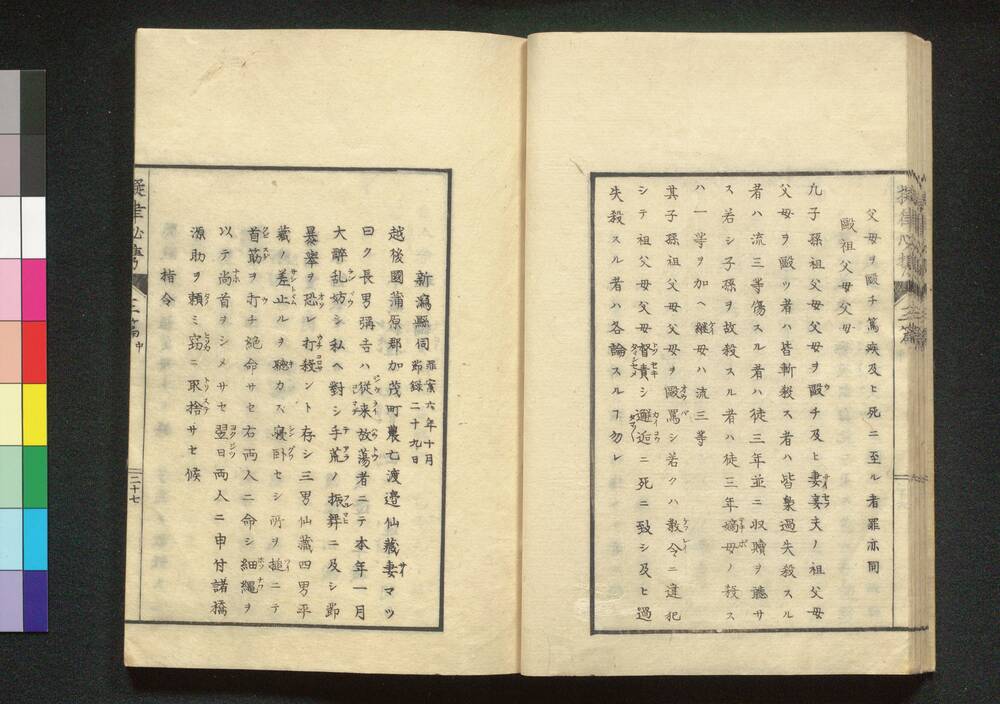 父母ヲ毆チ篤疾及ヒ死ニ至ル者罪亦同
毆祖父母父母
凡子孫祖父母父母ヲ毆チ及ヒ妻妾夫ノ祖父母
父母ヲ毆ツ者ハ皆斬殺ス者ハ皆梟過失殺スル
者ハ流三等傷スル者ハ徒三年並ニ収贖ヲ聽サ
ス若シ子孫ヲ故殺スル者ハ徒三年嫡母ノ殺ス
ハ一等ヲ加ヘ継母ハ流三等
其子孫祖父母父母ヲ毆罵シ若クハ敎令ニ違犯
シテ祖父母父母督責シ邂逅ニ死ニ致シ及ヒ過
失殺スル者ハ各論スルヿ勿レ
新潟縣伺 罪案六年十月
節録二十九日
越後國蒲原郡加茂町農亡渡邉仙藏妻マツ
曰ク長男彌吉ハ従来放蕩者ニテ本年一月
大醉乱坊シ私ヘ對シ手荒ノ振舞ニ及シ節
暴挙ヲ恐レ打殺ント存シ三男仙藏四男平
藏ノ差止ルヲ聽カス寝卧セシ所ヲ槌ニテ
首筋ヲ打チ絶命サセ右両人ニ命シ細縄ヲ
以テ尚首ヲシメサセ翌日両人ニ申付諸橋
源助ヲ頼ミ窃ニ取捨サセ候
指令
擬律必携 三篇中
二十七